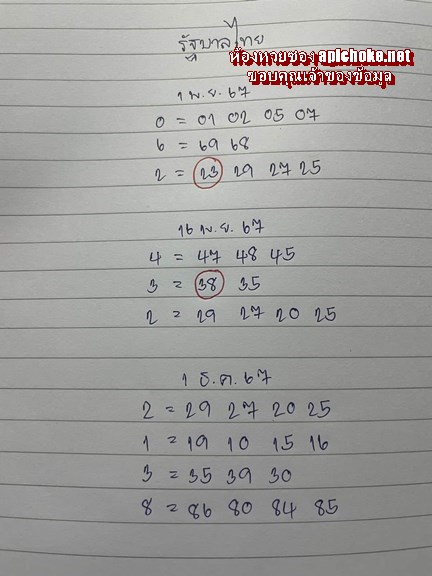 รัฐบาลไทย
ห้องหวยซอง apichoke.net
ขอบคุณเจ้าของข้อมูล
1 พ.ย. 67
0 = 01 02 05 07
6 = 69 68
2 = 23 29 27 25
16 พ.ย. 67
4 = 47 48 45
3 = 38 35
2 = 29 27 20 25
1 ธ.ค. 67
2 = 29 27 20 25
1 = 19 10 15 16
3 = 35 39 30
8 = 86 80 84 85